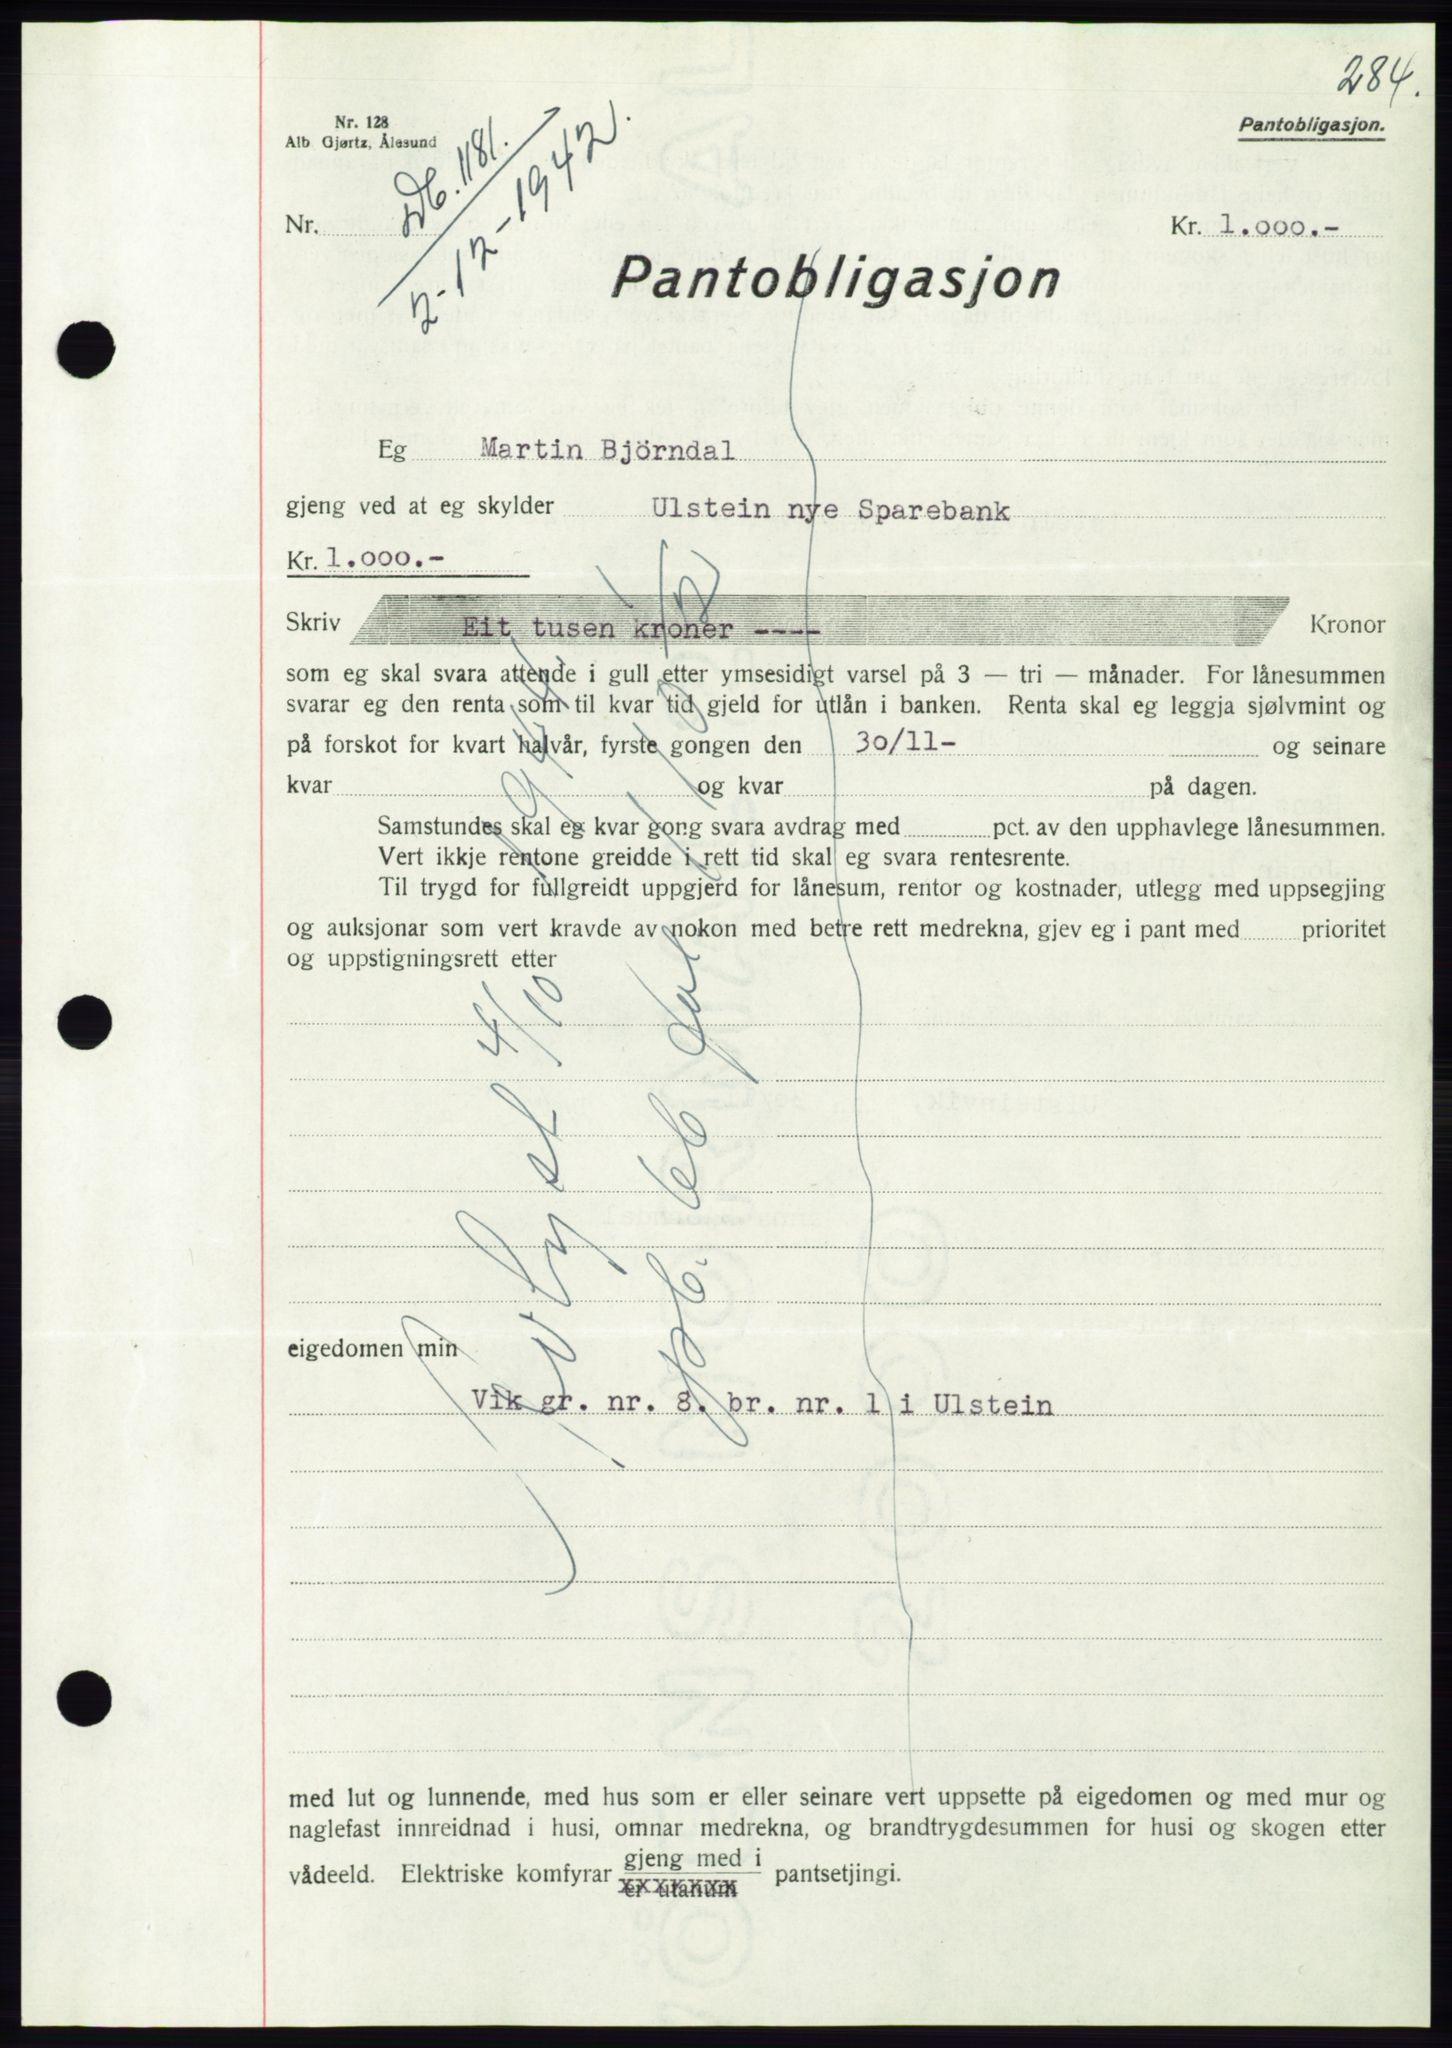 284.
Nr. 128
Alb Gjørtz, Ålesund
Pantobligasjon.
Nr.
Db. 1181.
2-12-1942.
Kr. 1.000.-
Pantobligasjon
Eg Martin Björndal
gjeng ved at eg skylder Ulstein nye Sparebank
Kr. 1.000.-
Skriv Eit tusen kroner ---- Kronor
som eg skal svara attende i gull etter ymsesidigt varsel på 3 — tri — månader. For lånesummen
svarar eg den renta som til kvar tid gjeld for utlån i banken. Renta skal eg leggja sjølvmint og
på forskot for kvart halvår, fyrste gongen den 30/11- og seinare
kvar og kvar på dagen.
Samstundes skal eg kvar gong svara avdrag med pct. av den upphavlege lånesummen.
Vert ikkje rentone greidde i rett tid skal eg svara rentesrente.
Til trygd for fullgreidt uppgjerd for lånesum, rentor og kostnader, utlegg med uppsegjing
og auksjonar som vert kravde av nokon med betre rett medrekna, gjev eg i pant med prioritet
og uppstigningsrett etter
Avlyst 4/10 1944
eigedomen min
Vik gr. nr. 8. br. nr. 1 i Ulstein
med lut og lunnende, med hus som er eller seinare vert uppsette på eigedomen og med mur og
naglefast innreidnad i husi, omnar medrekna, og brandtrygdesummen for husi og skogen etter
vådeeld. Elektriske komfyrar gjeng med i pantsetjingi.
er utanum